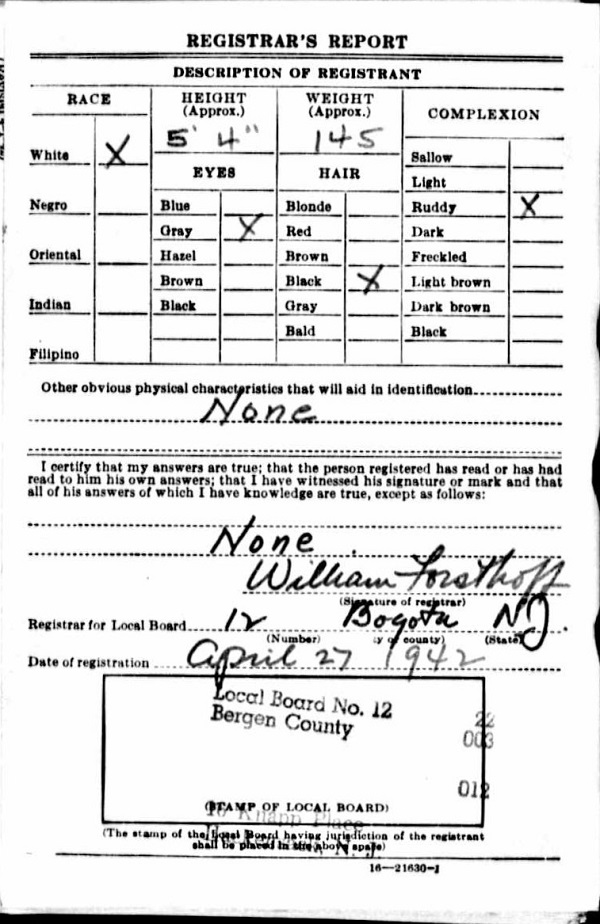 REGISTRAR'S REPORT
DESCRIPTION OF REGISTRANT
RACE
HEIGHT
(Approx.)
WEIGHT
(Approx.)
COMPLEXION
5' 4"
145
White X
EYES
HAIR
Sallow
Light
Negro
Blue
Blonde
Ruddy X
Gray X
Red
Dark
Oriental
Hazel
Brown
Freckled
Brown
Black X
Light brown
Indian
Black
Gray
Dark brown
Bald
Black
Filipino
Other obvious physical characteristics that will aid in identification
None
I certify that my answers are true; that the person registered has read or has had
read to him his own answers; that I have witnessed his signature or mark and that
all of his answers of which I have knowledge are true, except as follows:
None.
William Forsthoff
(Signature of registrar)
Registrar for Local Board 12 Bogota N.J.
(Number) y of county) (State)
Date of registration April 27 1942
Local Board No. 12
Bergen County
22
003
012
(STAMP OF LOCAL BOARD)
Knapp Place
N. J.
(The stamp of the Local Board having jurisdiction of the registrant
shall be placed in the above space)
16—21630-1